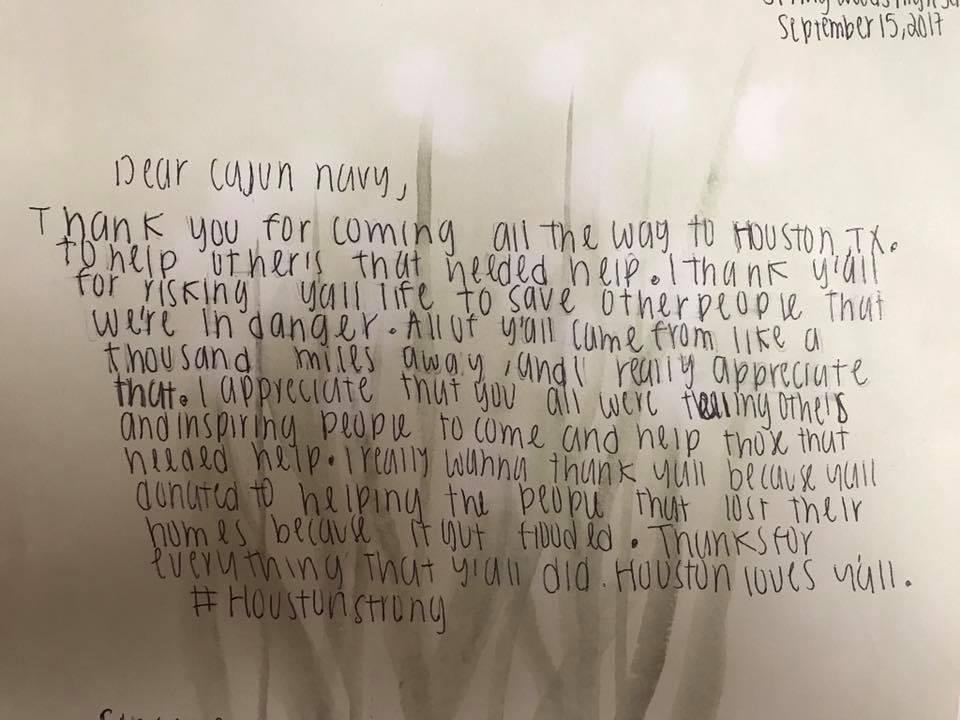 September 15, 2017
Dear Cajun navy,
Thank you for coming all the way to Houston, TX.
to help other's that needed help. I thank y'all
for risking yall life to save other people that
we're in danger. All of y'all came from like a
thousand miles away, and I really appreciate
that. I appreciate that you all were telling others
and inspiring people to come and help those that
needed help. I really wanna thank yall because yall
donated to helping the people that lost their
homes because it got flooded. Thanks for
everything that y'all did. Houston loves y'all.
#Houstonstrong